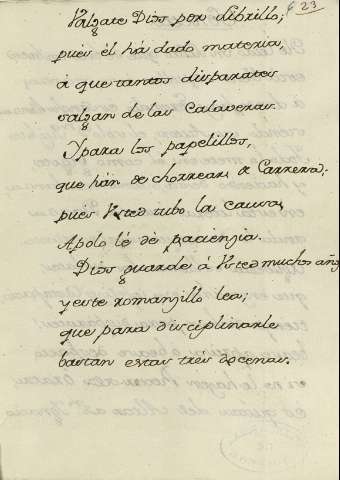 23
Valgate Dios por Librillo;
pues él há dado materia,
á que tantos disparates
salgan de las Calaveras.
Y para los papelillos,
que hán de chorrear, á Carrera;
pues Usted tubo la causa,
Apolo lé dé pacienzia.
Dios guarde á Usted muchos años
y este romanzillo lea;
que para disciplinarle
bastan estas trés docenas.